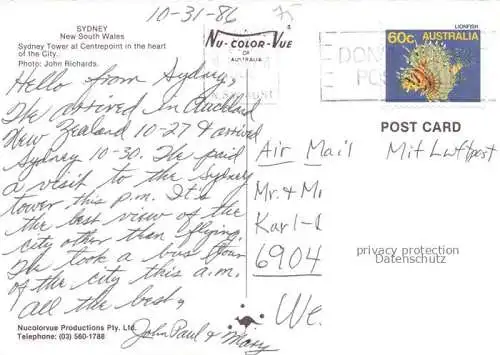 10-31-86
SYDNEY
New South Wales
Sydney Tower at Centrepoint in the heart
of the City.
Photo: John Richards.
NU-COLOR-VUE
OF
AUSTRALIA
LIONFISH
60c AUSTRALIA
Hello from Sydney,
The arrived in Auckland
New Zealand 10-27 & arrived
Sydney 10-30. The paid
a visit to the Sydney
tower this p.m. It's
the best view of the
city other than flying.
The took a bus tour
of the city this a.m.
All the best,
John Paul & Mary
POST CARD
Air Mail Mit Luftpost
Mr. & M
Karl-
6904
We.
privacy protection
Datenschutz
Nucolorvue Productions Pty. Ltd.
Telephone: (03) 560-1788